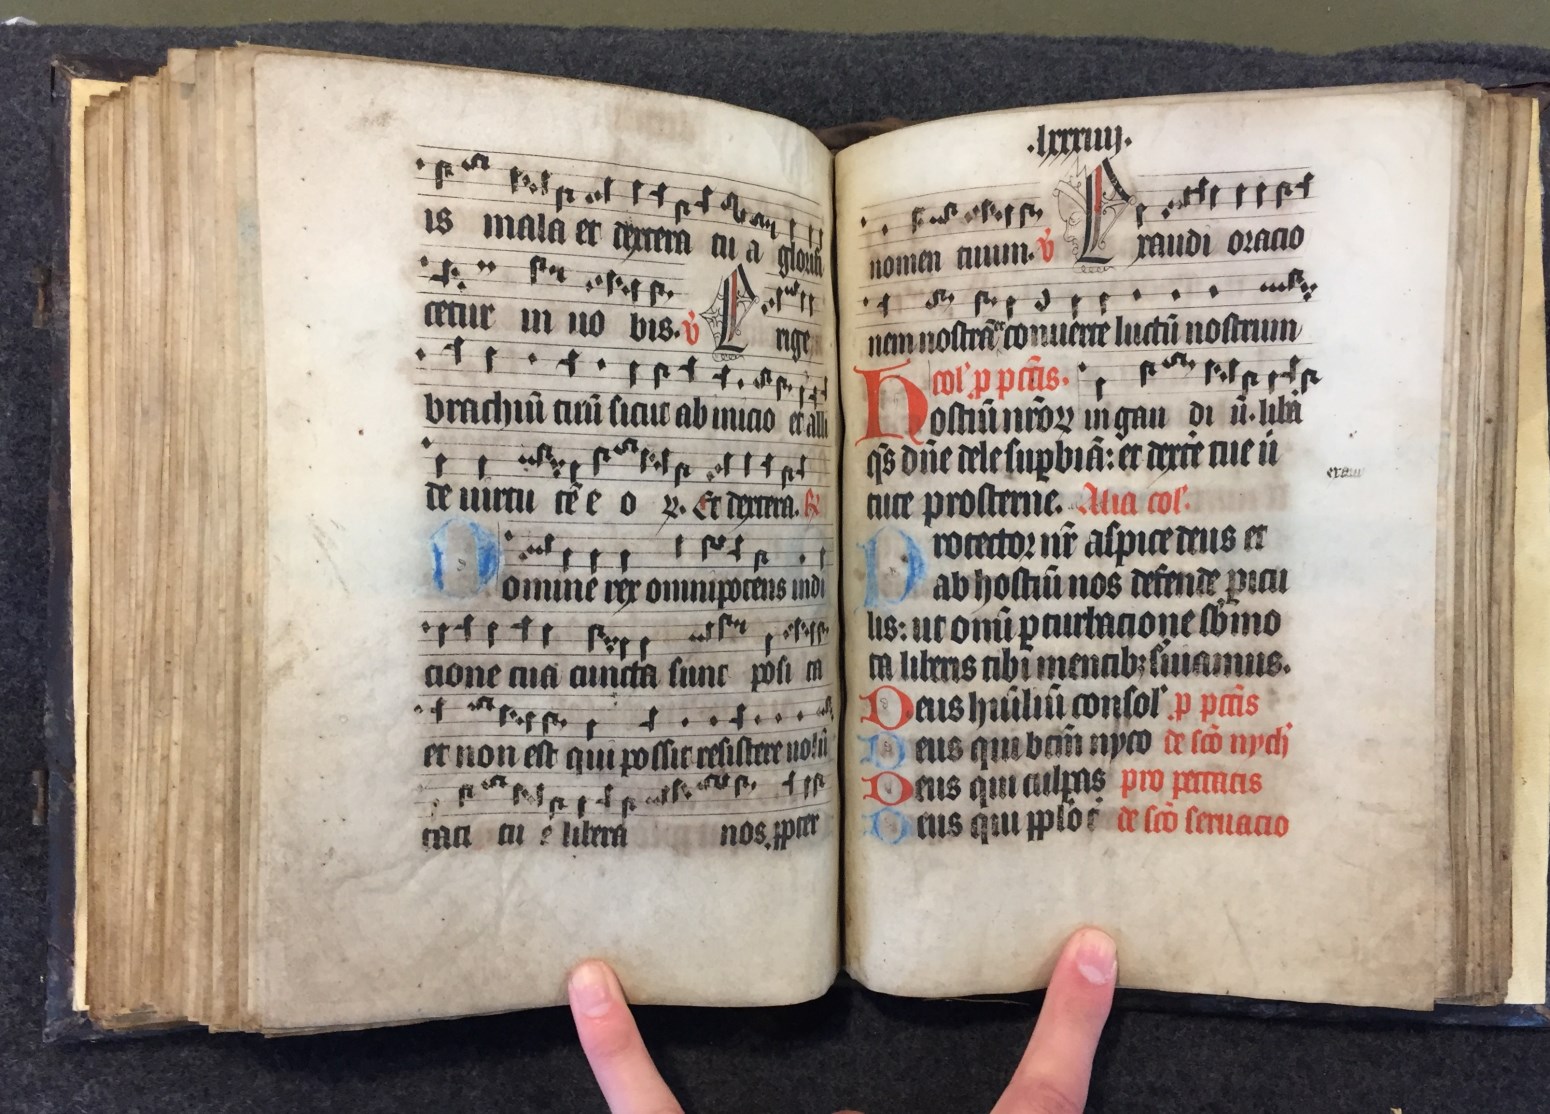 is mala et dextera tu a glorifi
cetur in no bis. v̇ E rige
brachiū tuū sicut ab inicio et alli
de uirtu tē e o ꝝ. Et dextera. R̃
Domine rex omnipotens in di
cione tua cuncta sunt posi ta
et non est qui possit resistere uolū
tati tu e libera nos ꝓpter
.lxxxiiij.
nomen tuum. v̇ Exaudi oracio
nem nostrā et conuerte luctū nostrum
col' p pctīs.
Hostiū nr̄oꝝ in gau di ū. libā
qs dn̄e dele supbiā: et dexte tue ū
tute prosterne. Alia col'.
Protector nr̄ aspice deus et
ab hostiū nos defende picu
lis: ut omī pturbacione sb̄mo
ta liberis tibi mentibꝫ ẜuiamus.
Deus hūiliū consol' p pctīs
Deus qui btm̄ nyco de sc̄o nych'
Deus qui culpas pro peccatis
Deus qui pplo de sc̄o seruacio